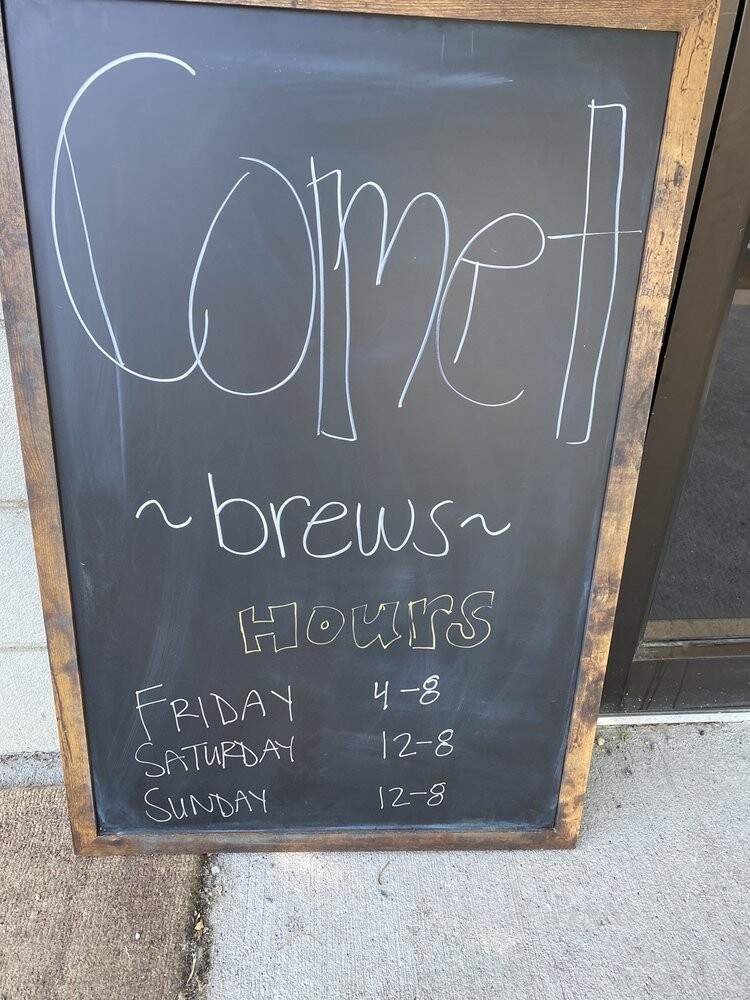 Comet
~brews~
Hours
FRIDAY 4-8
SATURDAY 12-8
SUNDAY 12-8